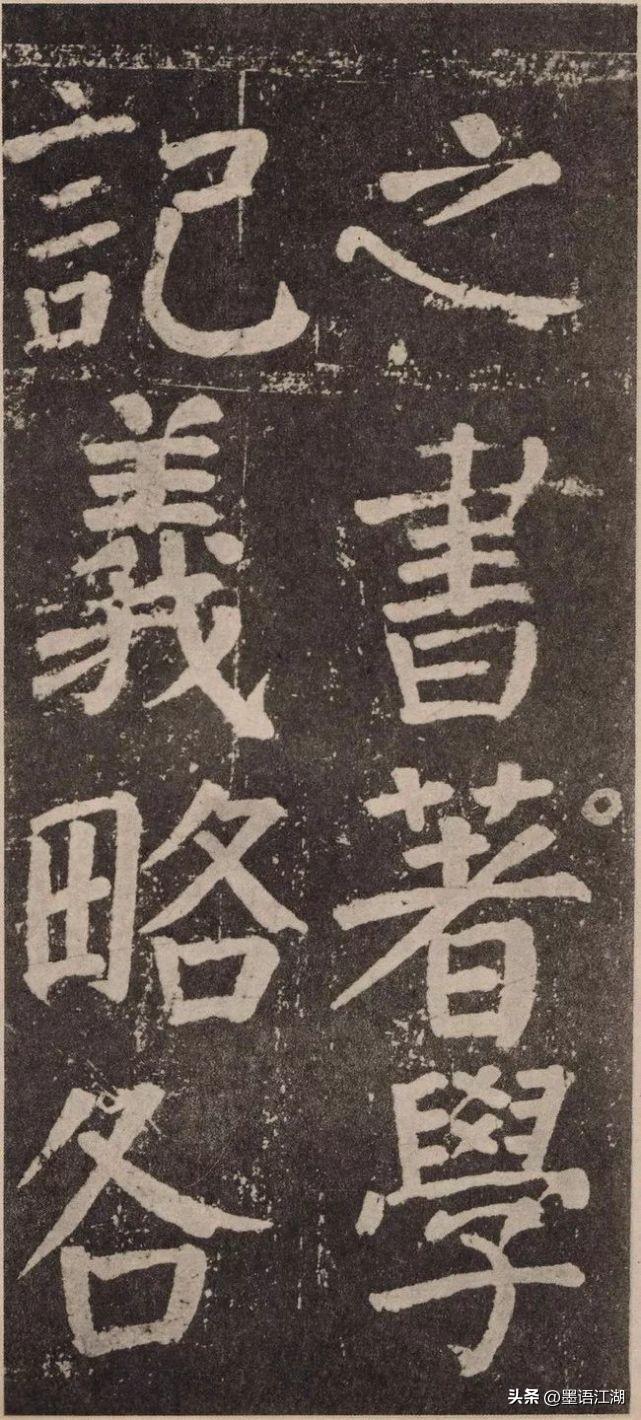 之書著學
記義略各
头条 @墨语江湖